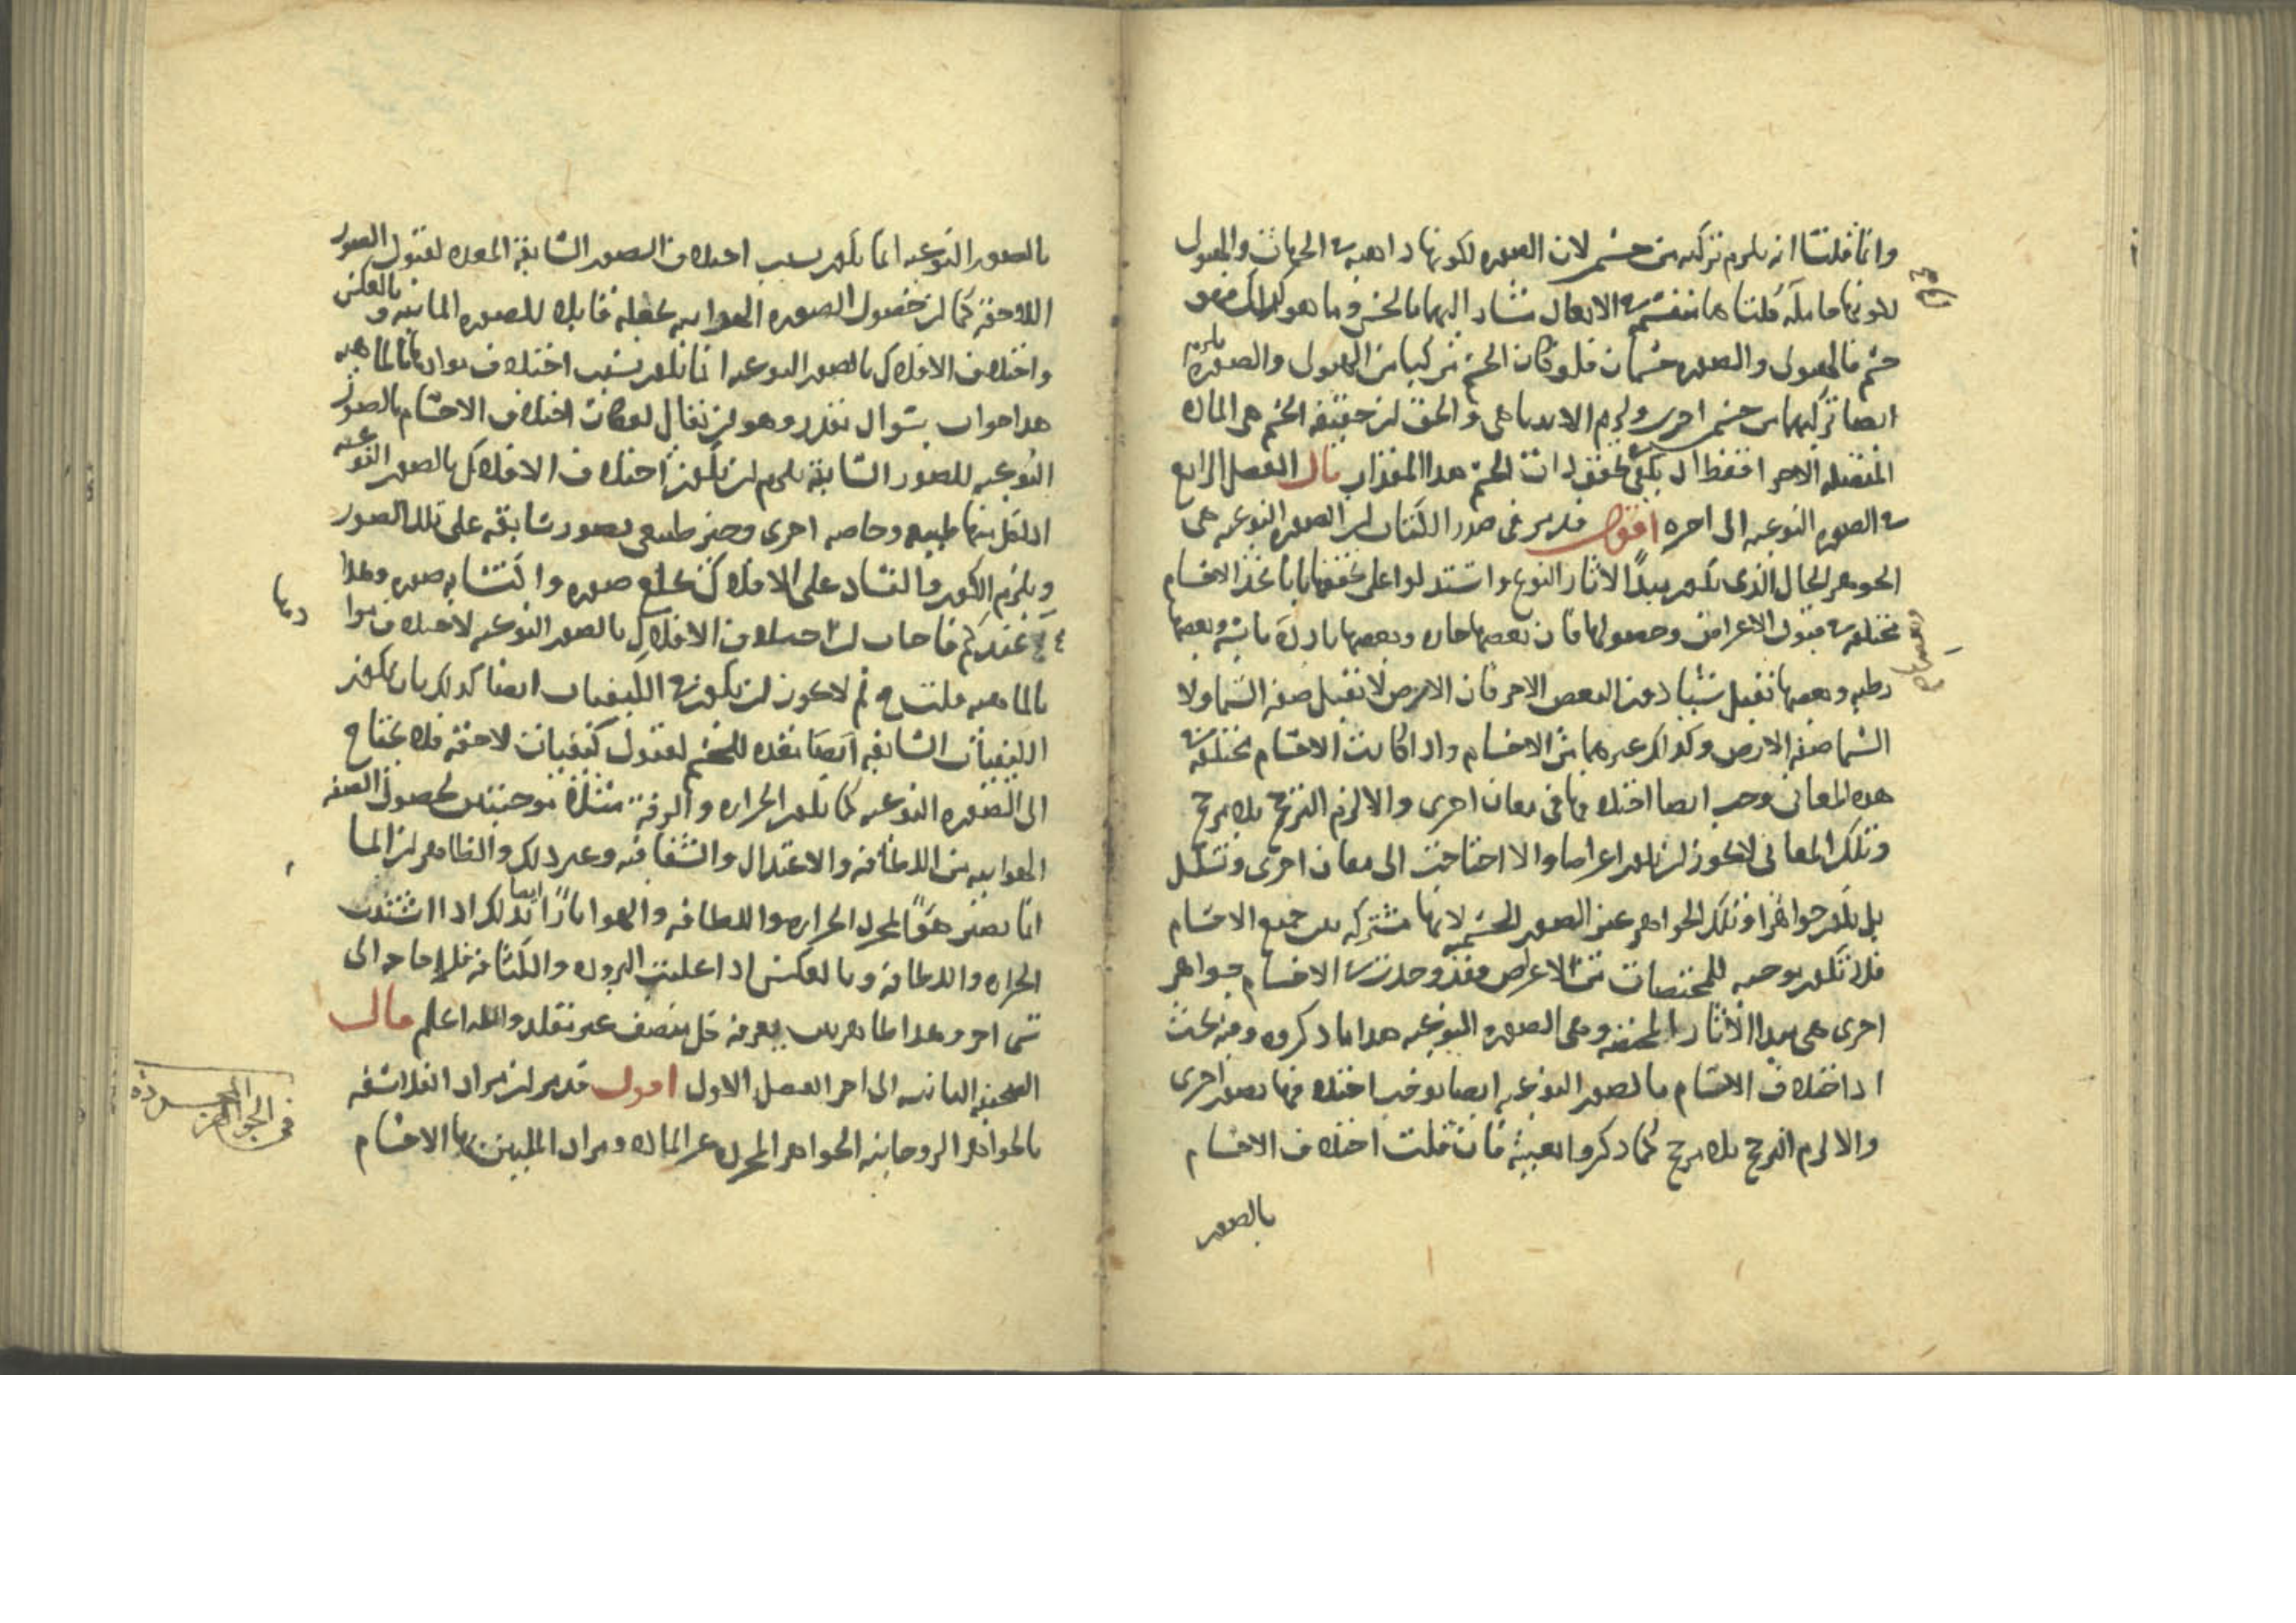 وانما قلنا انه يلزم تركبه من جسم لان الصوره لكونها ذاهبه في الجهات والهيولى
لكونها حامله قلنا هما منقسم في الابعاد مشار اليهما بالحس وما هو كذلك فهو
جسم فالهيولى والصوره جسمان فلو كان الجسم مركبا من الهيولى والصوره يلزم
ايضا تركبهما من جسم اخرى ولزم الا يتناهى والحق ان حقيقه الجسم هى الماده
المتصله الاجزا فقط اذ يكفى تحقق ذات الجسم هذا المقدار قال الفصل الرابع
في الصوره النوعيه الى اخره اقول قد مر في صدر الكتاب ان الصوره النوعيه هى
الجوهر الحال الذى يكون مبدأ لاثار النوع واستدلوا على تحققها بانا نجد الاجسام
مختلفه في قبول الاعراض وحصولها فان بعضها حاره وبعضها بارده يابسه وبعضها
رطبه وبعضها تقبل شيئا دون البعض الاخر فان الارض لا تقبل صفه السما ولا
السما صفه الارض وكذلك غيرهما من الاجسام واذا كانت الاجسام مختلفه في
هذه المعانى وجب ايضا اختلافها في معان اخرى والا لزم الترجح بلا مرجح
وتلك المعانى لا يجوز ان تكون اعراضا والا احتاجت الى معان اخرى وتسلسل
بل يكون جواهرا وتلك الجواهر غير الصور الجسميه لانها مشتركه بين جميع الاجسام
فلا تكون موجبه للمختصات من الاعراض فقد وجدت في الاجسام جواهر
اخرى هى مبدا الاثار المختلفه وهى الصوره النوعيه هذا ما ذكروه وفيه بحث
اذ اختلاف الاجسام بالصور النوعيه ايضا يوجب اختلافها بصور اخرى
والا لزم الترجح بلا مرجح كما ذكروا بعينه فان قلت اختلاف الاجسام
بالصور
بالصور النوعيه انما يكون بسبب اختلاف الصور السابقه المعده لقبول الصور
اللاحقه كما ان حصول الصوره الهوائيه يجعله قابلا للصوره المائيه وبالعكس
واختلاف الافلاك بالصور النوعيه انما يكون بسبب اختلاف موادها بالماهيه
هذا جواب سوال مقدر وهو ان يقال لو كان اختلاف الاجسام بالصور
النوعيه للصور السابقه يلزم ان يكون اختلاف الافلاك بالصور النوعيه
اذ لكل منها طبيعه وخاصه اخرى وحيز طبيعى بصور سابقه على تلك الصور
ويلزم الكون والفساد على الافلاك كخلع صوره واكتساب صوره وهذا
عندكم فاجاب ان اختلاف الافلاك بالصور النوعيه لاختلاف موادها
بالماهيه قلت لم لا يجوز ان يكون في الكيفيات ايضا كذلك بان يكون
الكيفيات السابقه ايضا معده للجسم لقبول كيفيات لاحقه فلا يحتاج
الى الصوره النوعيه كما يكون الحراره والرقه مثلا موجبتين لحصول الصفه
الهوائيه من اللطافه والاعتدال والشفافيه وغير ذلك والظاهر ان الما
انما يصير هواً لمجرد الحراره واللطافه والهوا ناراً ايضا كذلك اذا اشتدت
الحراره واللطافه وبالعكس اذا غلبت البروده والكثافه فلا حاجه الى
شى اخر وهذا ظاهر بين يعرفه كل منصف غير مقلد والله اعلم قال
الصحيفه الثانيه الى اخر الفصل الاول اقول قد مر ان مراد الفلاسفه
بالجواهر الروحانيه الجواهر المجرده عن الماده ومراد المليين بها الاجسام